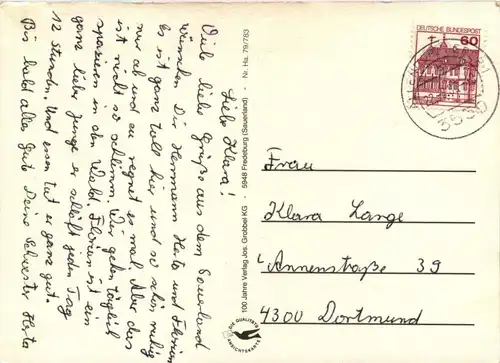 Liebe Klara!
Viele liebe Grüße aus dem Sauerland
wünschen Dir Hermann Herta und Florian
Es ist ganz toll hier und so schön ruhig
nur ab und zu regnet es mal. Aber das
ist nicht so schlimm. Wir gehen täglich
spazieren in den Wald. Florian ist ein
ganz lieber Junge er schläft jeden Tag
12 Stunden. Und essen tut er ganz gut.
Bis bald alles Gute Deine Schwester Herta
100 Jahre Verlag Jos. Grobbel KG · 5948 Fredeburg (Sauerland) · Nr. Ha. 79/783
DIE QUALITÄTS
ANSICHTSKARTE
DEUTSCHE BUNDESPOST
60
Frau
Klara Lange
Annenstraße 39
4300 Dortmund